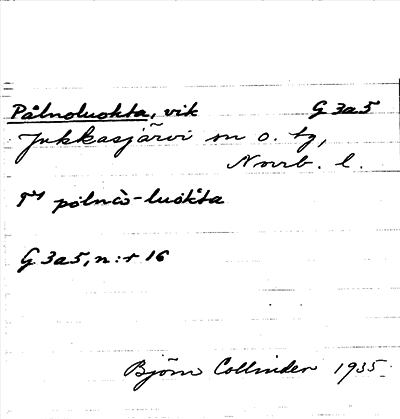 Pålnoluokta, vik G 3a5
Jukkasjärvi sn o. tg,
Norrb. l.
pålnò-luòkta
G 3a5, n:r 16
Björn Collinder 1935